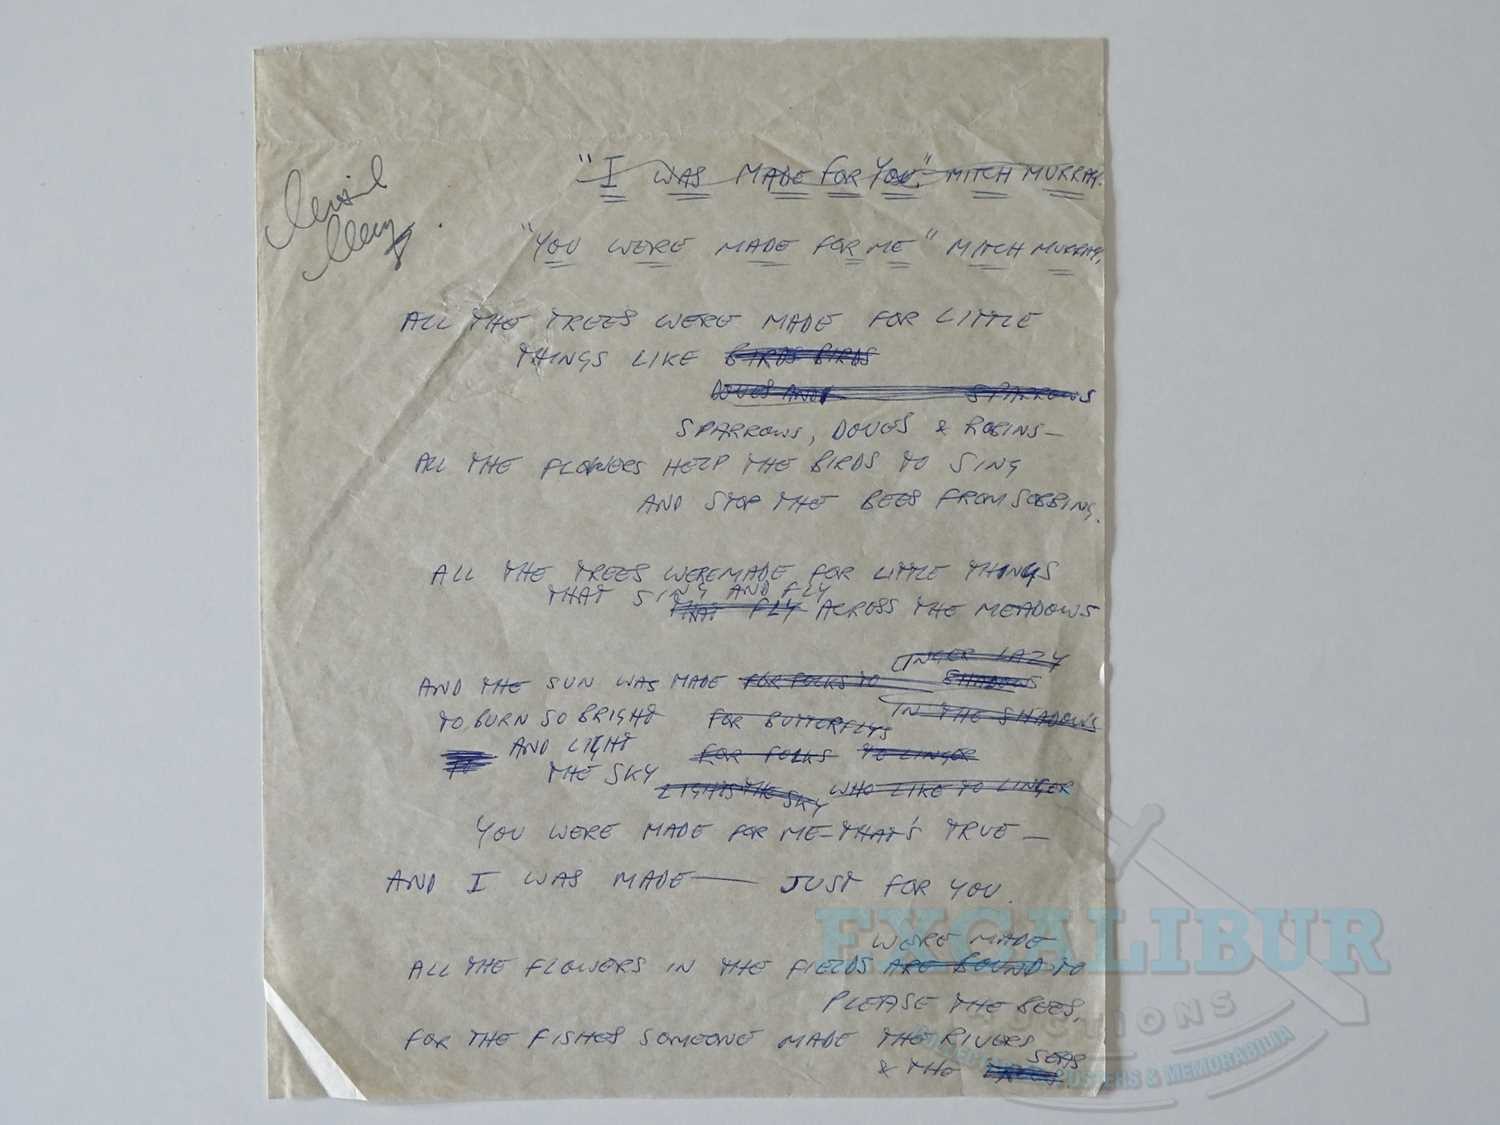 "I WAS MADE FOR YOU," MITCH MURRAY.
"YOU WERE MADE FOR ME" MITCH MURRAY.
ALL THE TREES WERE MADE FOR LITTLE
THINGS LIKE BIRDS BIRDS
DOVES AND SPARROWS
SPARROWS, DOVES & ROBINS—
ALL THE FLOWERS HELP THE BIRDS TO SING
AND STOP THE BEES FROM SOBBING.
ALL THE TREES WERE MADE FOR LITTLE THINGS
THAT SING AND FLY
THAT FLY ACROSS THE MEADOWS
LINGER LAZY
AND THE SUN WAS MADE FOR FOLKS TO SHADOWS
TO BURN SO BRIGHT FOR BUTTERFLYS IN THE SHADOWS
AND LIGHT FOR FOLKS TO LINGER
THE SKY LIGHTS THE SKY WHO LIKE TO LINGER
YOU WERE MADE FOR ME—THAT'S TRUE—
AND I WAS MADE— JUST FOR YOU.
WERE MADE
ALL THE FLOWERS IN THE FIELDS ARE BOUND TO
PLEASE THE BEES,
FOR THE FISHES SOMEONE MADE THE RIVERS
SEAS
& THE
EXCALIBUR
AUCTIONS
POSTERS & MEMORABILIA